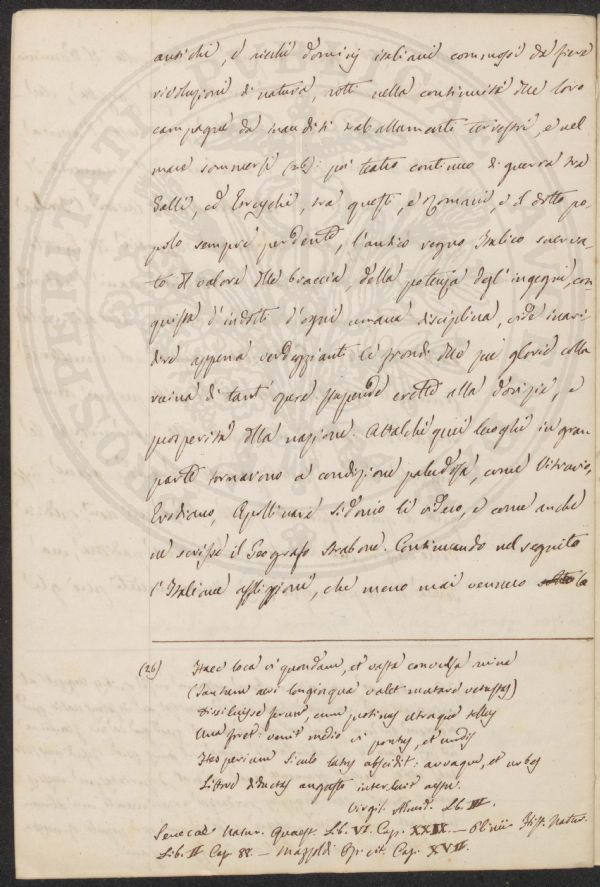 antichi, e ricchi dominj italiani commossi da fiera
rivoluzione di natura, rotti nella continuità delle loro
campagne da inauditi traballamenti terrestri, e nel
mare sommersi (26): poi teatro continuo di guerra tra
Galli, ed Etruschi, tra questi, e Romani, e il detto po-
polo sempre perdente, l'antico regno Italico snerva-
to del valore delle braccia, della potenza degl'ingegni, con
quista d'indotti d'ogni umana disciplina, vide inari-
dire appena verdeggianti le frondi delle sue glorie colla
ruina di tant' opere stupende erette alla dovizie, e
prosperità della nazione. Attalchè quei luoghi in gran
parte tornarono a condizione paludosa, come Vitruvio,
Erodiano, Apollinare Sidonio li videro, e come anche
ne scrisse il Geografo Strabone. Continuando nel seguito
l'Italiane afflizioni, che meno mai vennero la
(26) Haec loca vi quondam, et vasta convulsa ruina
(Tantum aevi longinqua valet mutare vetustas)
Dissiluisse ferunt, cum protinus utraque tellus
Una foret: venit medio vi pontus, et undis
Hesperium Siculo latus abscidit: arvaque, et urbes
Littore diductas angusto interluit aestu.
Virgil. Aeneid. Lib. III.
Senecae Natur. Quaest. Lib. VI. Cap. XXIX. — Plinii Hist. Natur.
Lib. II Cap. 88. — Mazzoldi Op. cit. Cap. XVII.